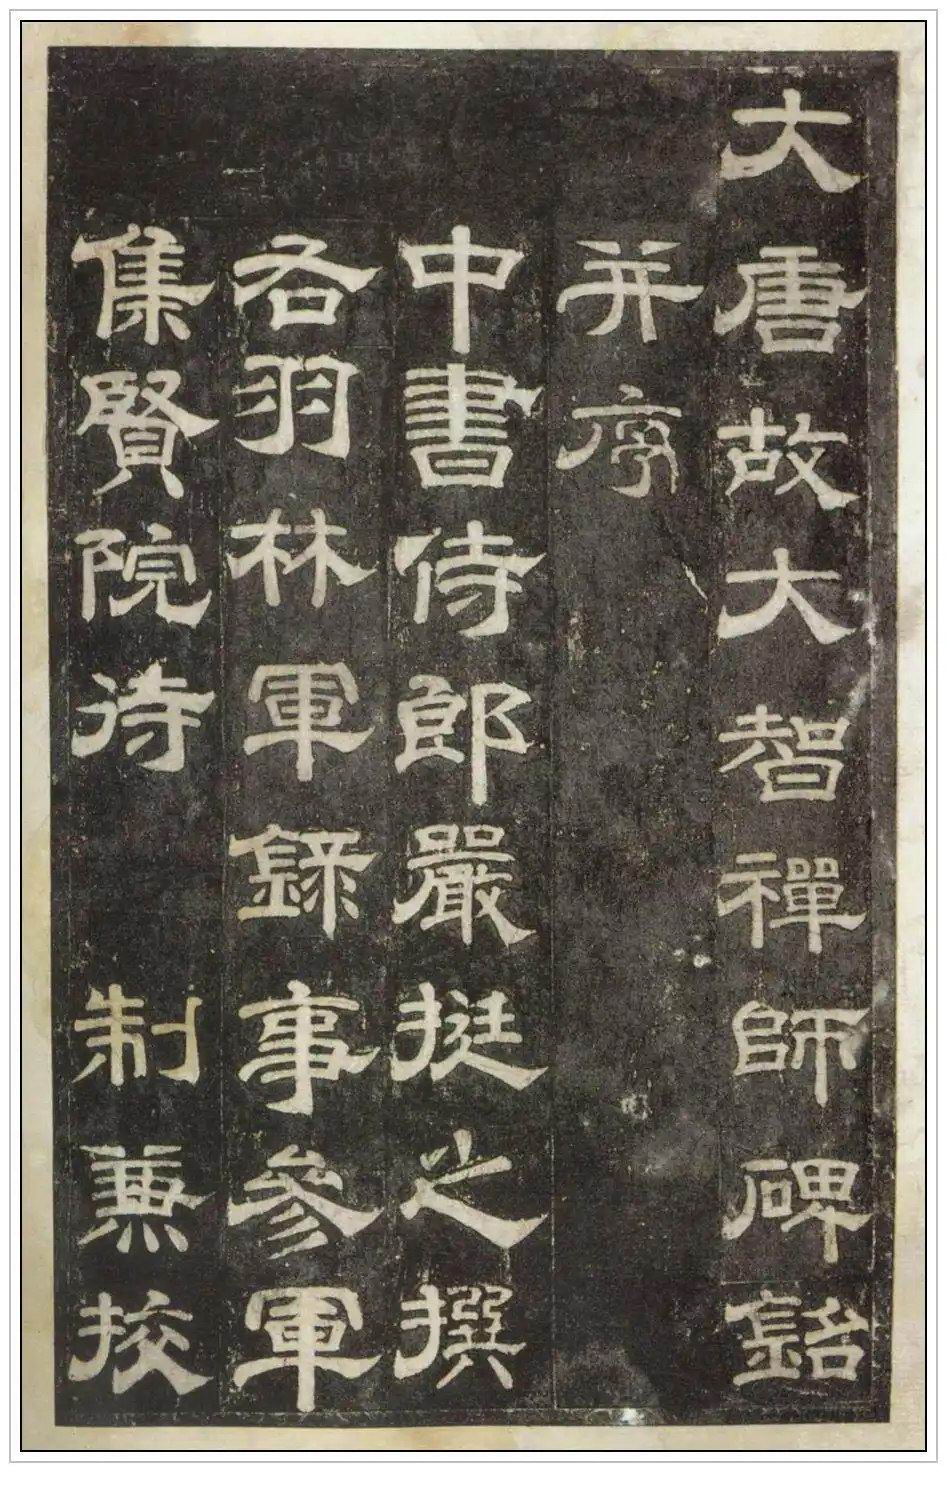 大唐故大智禪師碑銘
并序
中書侍郎嚴挺之撰
右羽林軍錄事參軍
集賢院待制兼校